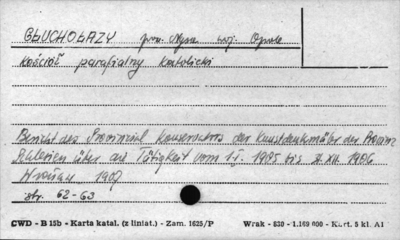 GŁUCHOŁAZY pow. Nysa woj. Opole
Kościół parafialny katolicki
Bericht des Provinzial Konservators der Kunstdenkmäler der Provinz
Schlesien über die Tätigkeit vom 1.I. 1905 bis 31.XII. 1906
Wrocław 1907
str. 62-63
CWD - B 15b - Karta katal. (z liniat.) - Zam. 1625/P Wrak - 830 - 1.169 000 - Kart. 5 kl. A1